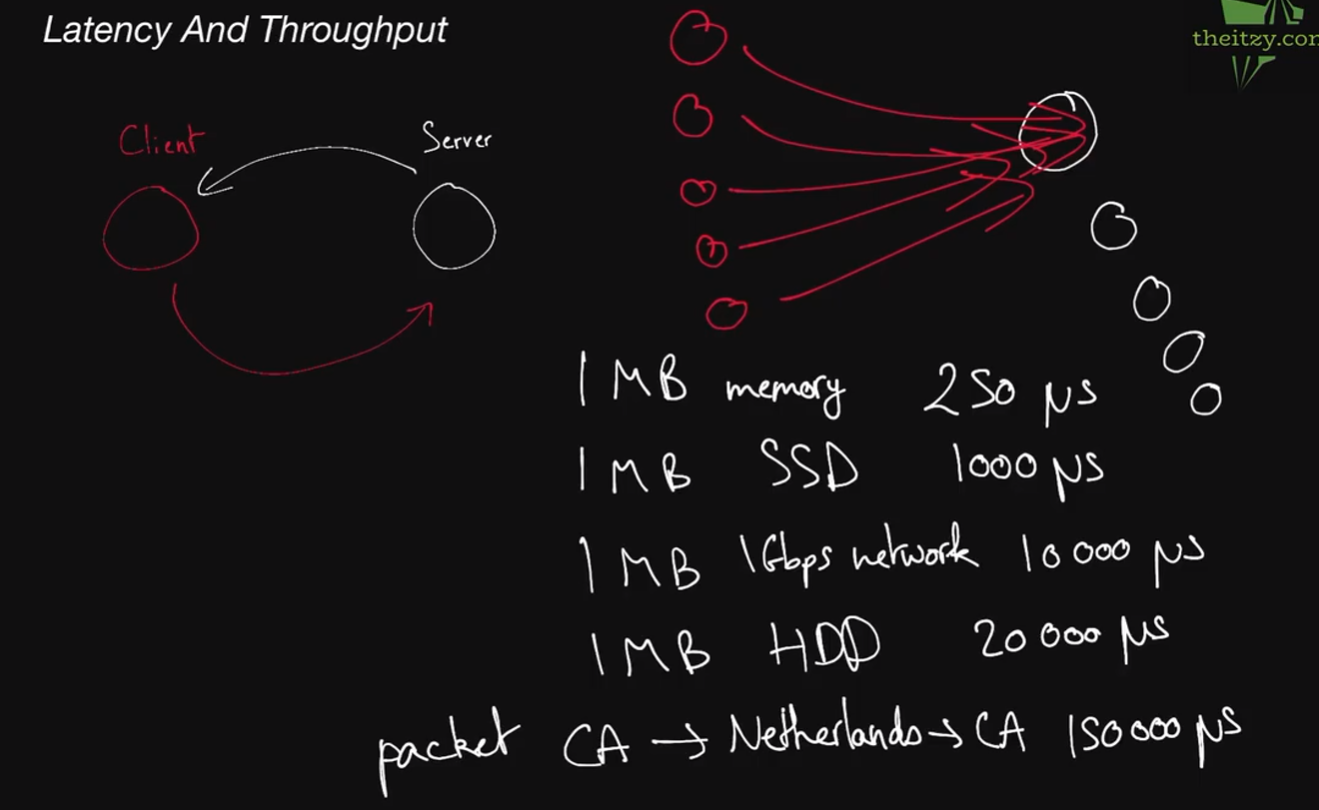 Latency And Throughput
theitzy.com
Client
Server
1 MB memory 250 µs
1 MB SSD 1000 µs
1 MB 1Gbps network 10 000 µs
1 MB HDD 20 000 µs
packet CA → Netherlands → CA 150 000 µs